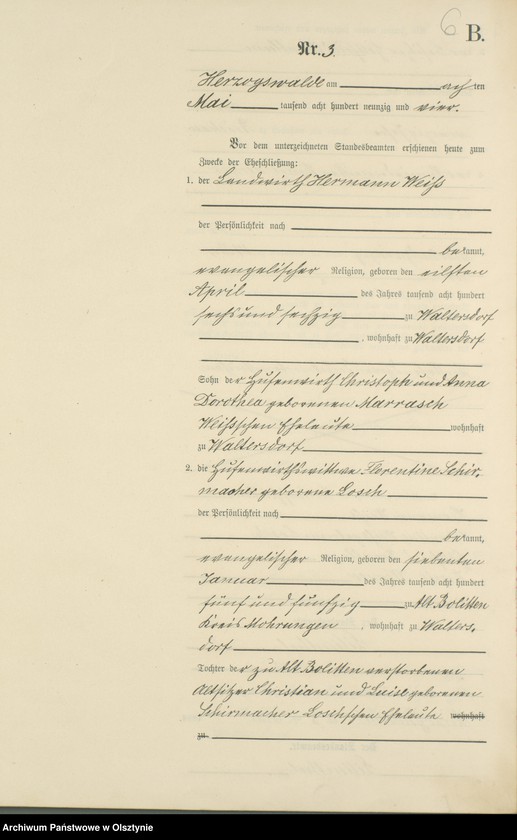 6 B.
Nr. 3.
Herzogswalde am achten
Mai tausend acht hundert neunzig und vier.
Vor dem unterzeichneten Standesbeamten erschienen heute zum
Zwecke der Eheschließung:
1. der Landwirth Hermann Weiß
der Persönlichkeit nach
bekannt,
evangelischer Religion, geboren den eilften
April des Jahres tausend acht hundert
sechs und sechzig zu Waltersdorf
, wohnhaft zu Waltersdorf
Sohn der Hufenwirth Christoph und Anna
Dorothea geborenen Marrasch
Weiß'schen Eheleute wohnhaft
zu Waltersdorf
2. die Hufenwirthswittwe Florentine Schir-
macher geborene Losch
der Persönlichkeit nach
bekannt,
evangelischer Religion, geboren den siebenten
Januar des Jahres tausend acht hundert
fünf und fünfzig zu Alt Bolitten
Kreis Mohrungen , wohnhaft zu Walters-
dorf
Tochter der zu Alt Bolitten verstorbenen
Altsitzer Christian und Luise geborenen
Schirmacher Losch'schen Eheleute wohnhaft
zu
Archiwum Państwowe w Olsztynie